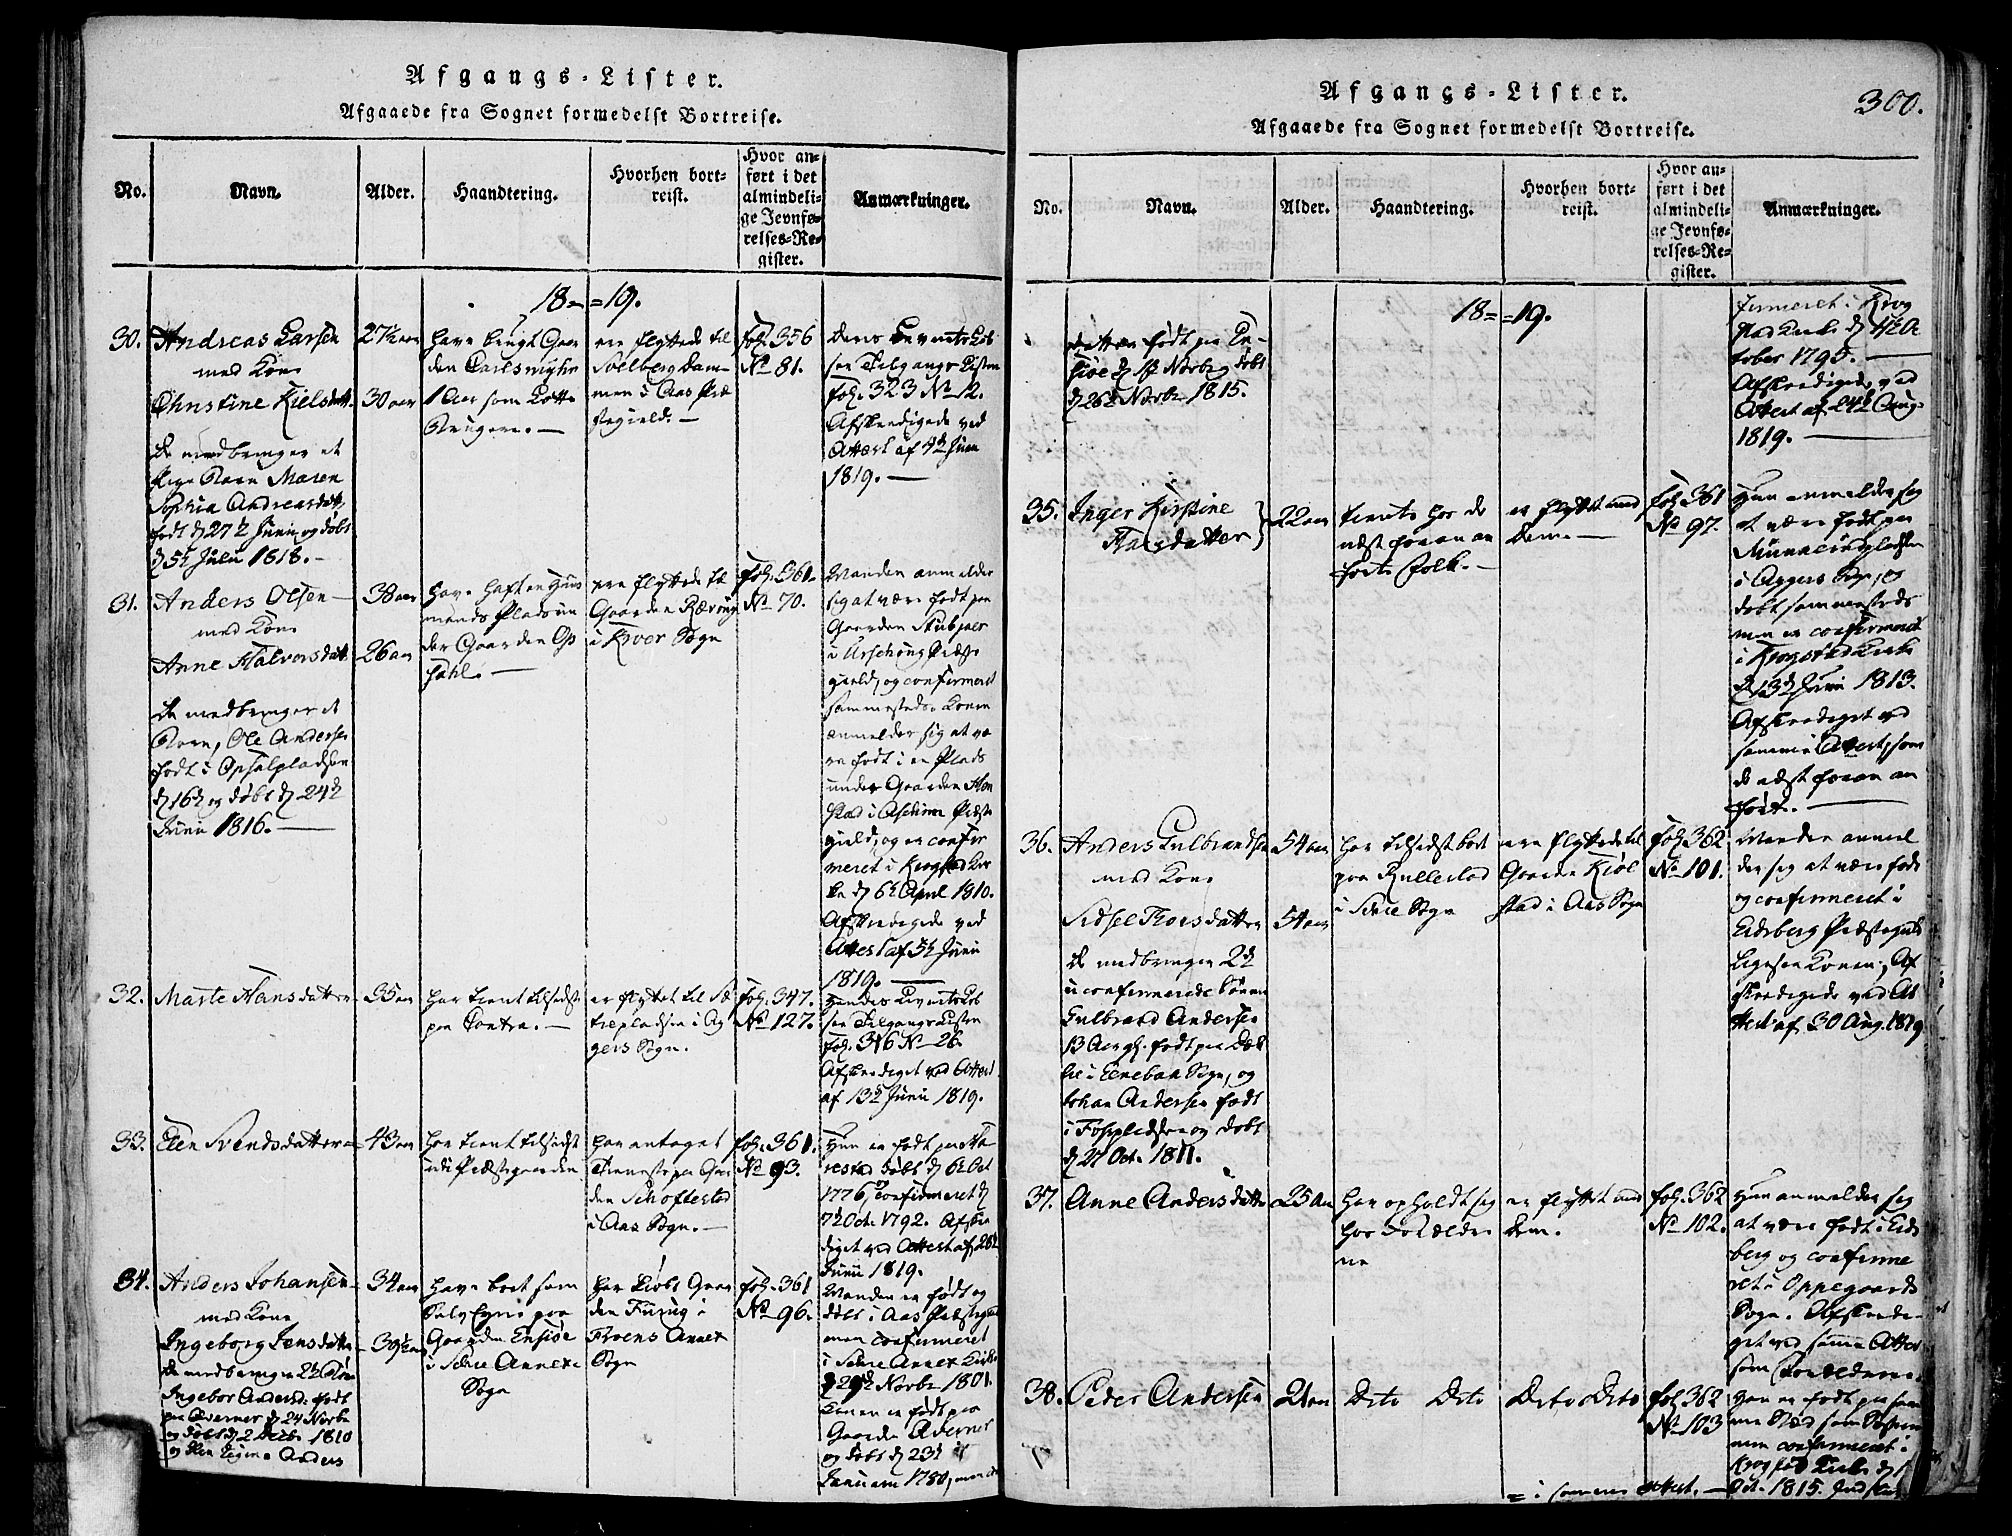 Afgangs-Lister.
Afgaaede fra Sognet formedelst Bortreise.
No.
Navn.
Alder.
Haandtering.
Hvorhen bort-
reist.
Hvor an-
ført i det
almindeli-
ge Jevnfø-
relses-Re-
gister.
Anmærkninger.
18 = =19.
30.
Andreas Larsen
med Kone
Christine Kielsdatt.
De medbringer et
Pige Barn Maren
Sophia Andreasdatt
født d 27de Junii og døbt
d 5te Julii 1818. -
27½ aar
30 aar
have brugt Gaar
den Carlsmyhr
1 Aar som Lotte
Brugere. -
ere flyttede til
Solberg Dam-
men i Aas Præ
stegield. -
fol. 356
No 81.
Deres
see Tilgangs Listen
fol. 323 No 12.
Afskedigede ved
Attest af 4de Junii
1819. -
31.
Anders Olsen -
med Kone
Anne Halvorsdatt
De medbringer et
Barn, Ole Andersen
født i Opsalpladsen
d 16de og døbt d 24de
Junii 1816. -
38 aar
26 aar
have haft en Huus
mands Plads un
der Gaarden Op
sahl. -
ere flyttede til
Gaarden
i Kroer Sogn
fol. 361.
No 70.
Manden anmelder
sig at være født paa
Gaarden Stubjaer
i Urschoug Præste
gield, og confirmeret
sammesteds. Konen
anmelder sig at væ
re født i en Plads
under Gaarden Hon
stad i Aschim Præste
gield, og er confir
meret i Krogstad Kir
ke d 6te April 1810.
Afskedigede ved
Attest af 5te Junii
1819. -
32.
Marte Hansdatter
35 aar
har tient tilsidst
paa Tontra. -
er flyttet til Sæ
terpladsen i Ag
gers Sogn.
fol. 347.
No 127.
Hendes
see Tilgangs Listen
fol. 316 No 26.
Afskediget ved Attest
af 13de Junii 1819.
33.
Elen Svendsdatter
43 aar
har tient tilsidst
i Præstegaarden
har antaget
Tieneste paa Gaar
den Schoftestad
i Aas Sogn. -
fol. 361.
No 93.
Hun er født paa Ha-
restad døbt d 6te Oct
1776, confirmeret d
7 Oct. 1792. Afske
diget ved Attest af 28de
Junii 1819.
34.
Anders Johansen
med Kone
Ingeborg Jensdatter
De medbringer 2de Børn
Ingebor Andersd: født
paa Aderner d 24 Novbr
og døbt d 2 Decbr 1810
og den Anders
34 aar
39½ aar
have boet som
Selv Eyere paa
Gaarden Ensiøe
i Schie Annexe
Sogn
har kiøbt Gaar
den Furug i
Froens Annex
Sogn
fol. 361
No 96.
Manden er født og
døbt i Aas Præstegield
men confirmeret
i Schie Annex Kirke
d 29de Novbr 1801.
Konen er født paa
Gaarden Aderner
og døbt d 23de
Januarii 1780, men con
Afgangs-Lister.
300.
Afgaaede fra Sognet formedelst Bortreise.
No.
Navn.
Alder.
Haandtering.
Hvorhen bort-
reist.
Hvor an-
ført i det
almindeli-
ge Jevnfø-
relses-Re-
gister.
Anmærkninger.
18 = =19.
datter født paa En-
siøe d 18 Novbr og døbt
d 26de Novbr 1815.
firmeret i Krog
stad Kirke d 4de Oc
tober 1795. -
Afskedigede ved
Attest af 24de Aug.
1819. -
35.
Inger Kirstine
Hansdatter
22 aar
tiente hos de
næst foran an
førte Folk. -
er flyttet med
dem. -
fol. 361
No 97.
Hun anmelder sig
at være født paa
i Aggers Sogn, og
døbt sammesteds
men er confirmeret
i Krogstad Kirke
d 13de Junii 1813.
Afskediget ved
samme Attest, som
de næst foran an
førte. -
36.
Anders Gulbrandsen
med Kone
Sidsel Thorsdatter
De medbringer 2de
uconfirmerede Sønner
Gulbrand Andersen
13 Aar gl. født paa Bak
ke i Enebak Sogn, og
Johan Andersen født
i Fosspladsen og døbt
d 27 Oct. 1811.
54 aar
54 aar
har tilsidst boet
paa Kullestad
i Schie Sogn
ere flyttede til
Gaarden Kiøl
stad i Aas Sogn
fol. 362
No 101.
Manden anmel
der sig at være født
og confirmeret i
Eidsberg Præstegield
Ligesaa Konen. Af
skedigede ved At
test af 30 Aug. 1819.
37.
Anne Andersdatter
25 aar
har opholdt sig
hos Forældre
ne
er flyttet med
dem.
fol. 362
No 102.
Hun anmelder sig
at være født i Eids
berg og confirme
ret i Oppegaards
Sogn. Afskedi-
get ved samme Attest
som Forældrene.
38.
Peder Andersen
21 aar
Dito Dito
Dito Dito
fol 362
No 103
Han er født paa sam
me Sted som Søsteren
men confirmeret i
Krogstad Kirke d 1
Oct. 1815.
= i samme Attest. -